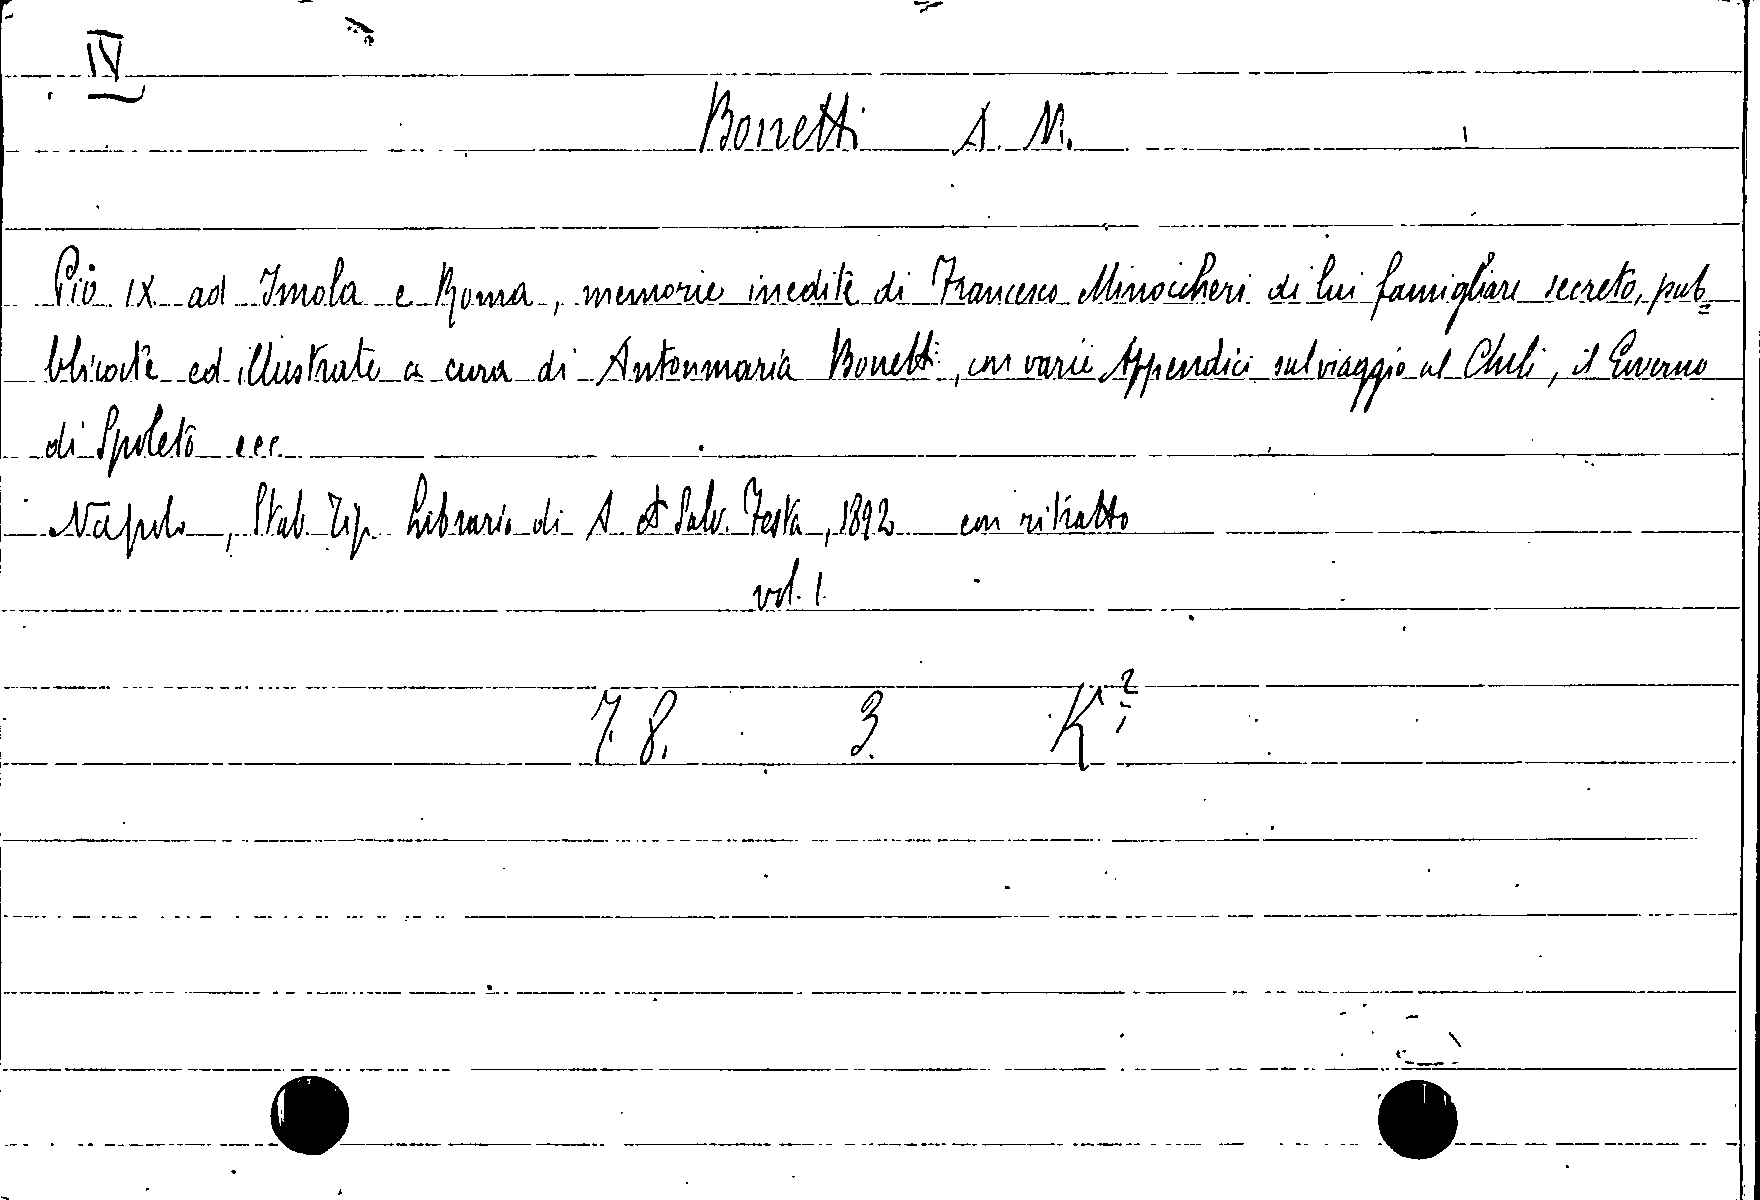 IV
Bonetti A. M.
Pio IX ad Imola e Roma, memorie inedite di Francesco Minoccheri di lui famigliare secreto, pub=
blicate ed illustrate a cura di Antonmaria Bonetti, con varie Appendici sul viaggio al Chili, il Governo
di Spoleto ecc.
Napoli, Stab. Tip. Librario di A. et Salv. Festa, 1892 con ritratto
vol. 1
7. 8. 3. K 2